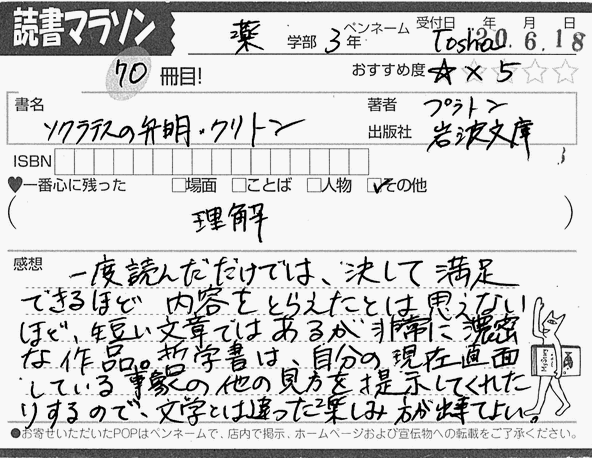 読書マラソン
薬 学部 3年 ペンネーム Toshia 受付日 年 月 日 '20.6.18
70 冊目! おすすめ度 ☆×5 ☆☆
書名 著者 プラトン
ソクラテスの弁明・クリトン 出版社 岩波文庫
ISBN
♥一番心に残った □場面 □ことば □人物 ☑その他
( 理解 )
感想
一度読んだだけでは、決して満足
できるほど内容をとらえたとは思えない
ほど、短い文章ではあるが非常に濃密
な作品。哲学書は、自分の現在直面
している事象の他の見方を提示してくれた
りするので、文学とは違った楽しみ方が出来てよい。
●お寄せいただいたPOPはペンネームで、店内で掲示、ホームページおよび宣伝物への転載をご了承ください。